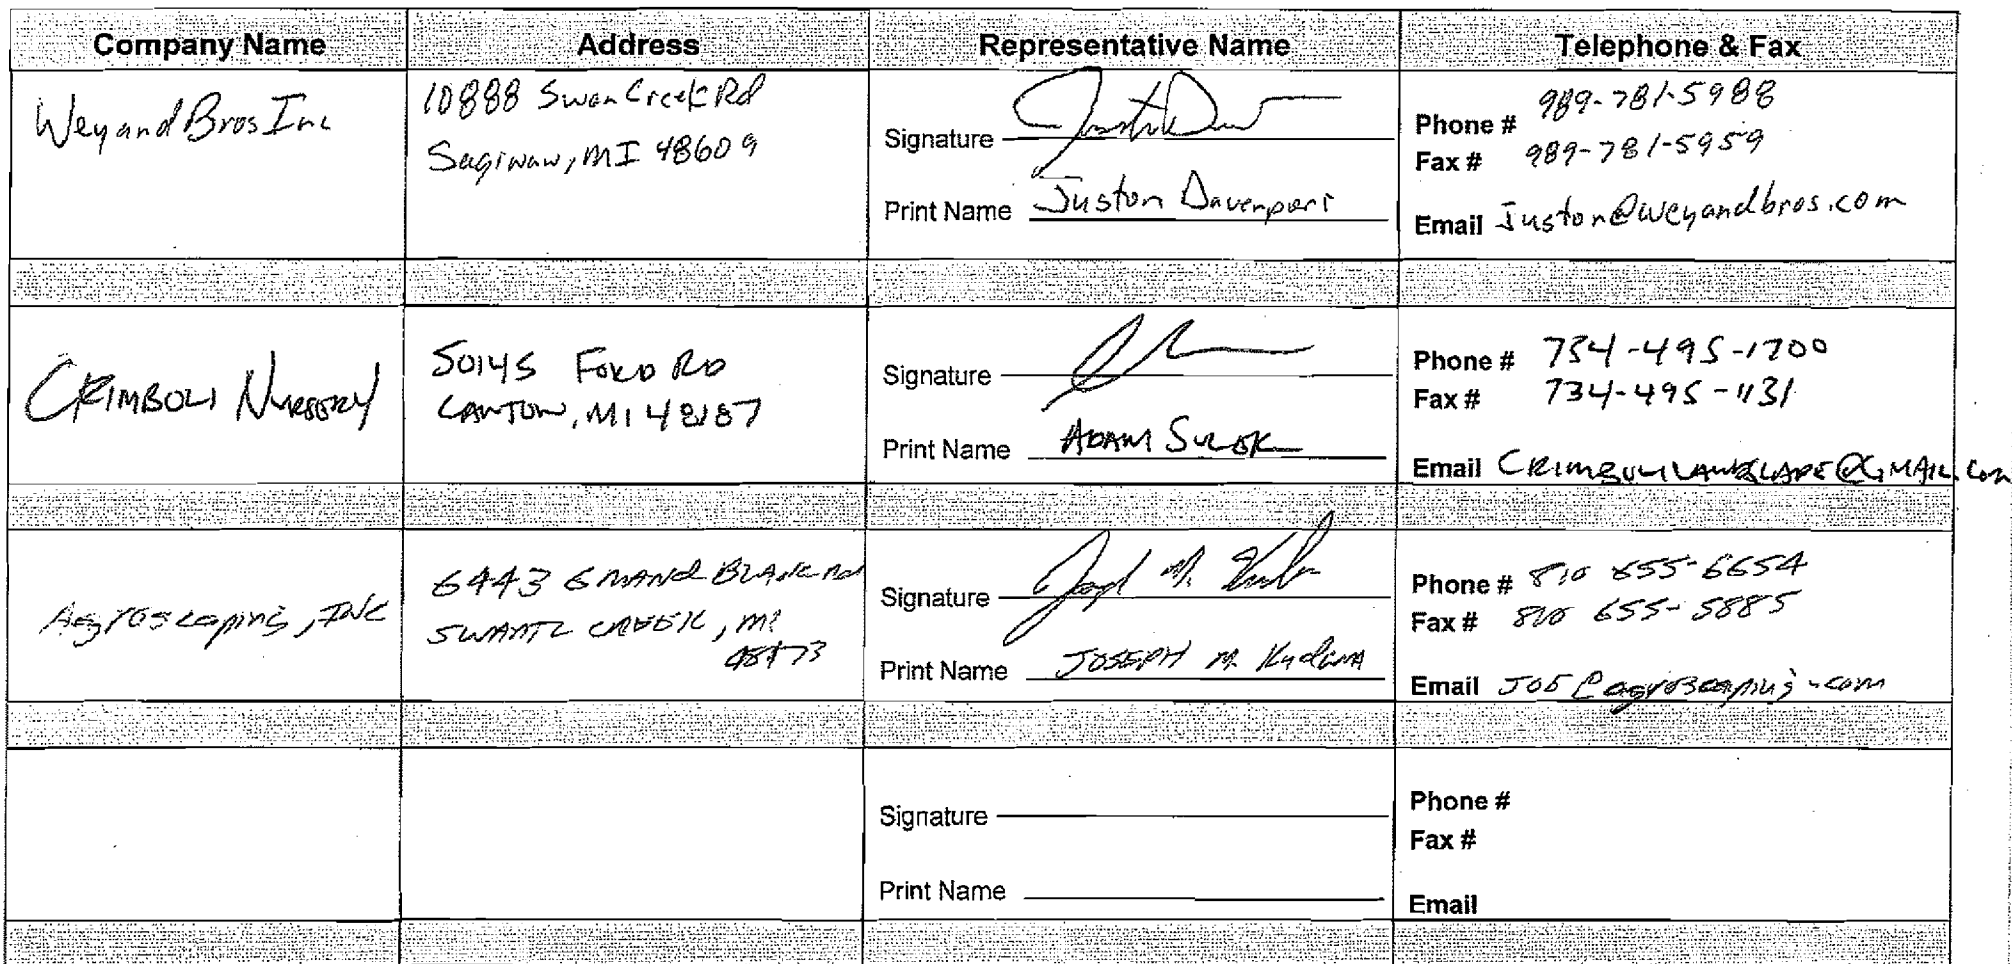 Company Name Address Representative Name Telephone & Fax
Weyand Bros Inc
10888 Swan Creek Rd
Saginaw, MI 48609
Signature
Print Name Juston Davenport
Phone # 989-781-5988
Fax # 989-781-5959
Email Juston@weyandbros.com
CRIMBOLI NURSERY
50145 FORD RD
CANTON, MI 48187
Signature
Print Name ADAM
Phone # 734-495-1700
Fax # 734-495-1131
Email CRIMBOLILANDSCAPE@GMAIL.com
Agroscaping, INC
6443 GRAND BLANC Rd
SWARTZ CREEK, MI
48473
Signature
Print Name JOSEPH M.
Phone # 810 655-6654
Fax # 810 655-5885
Email JOE@agroscaping.com
Signature
Print Name
Phone #
Fax #
Email